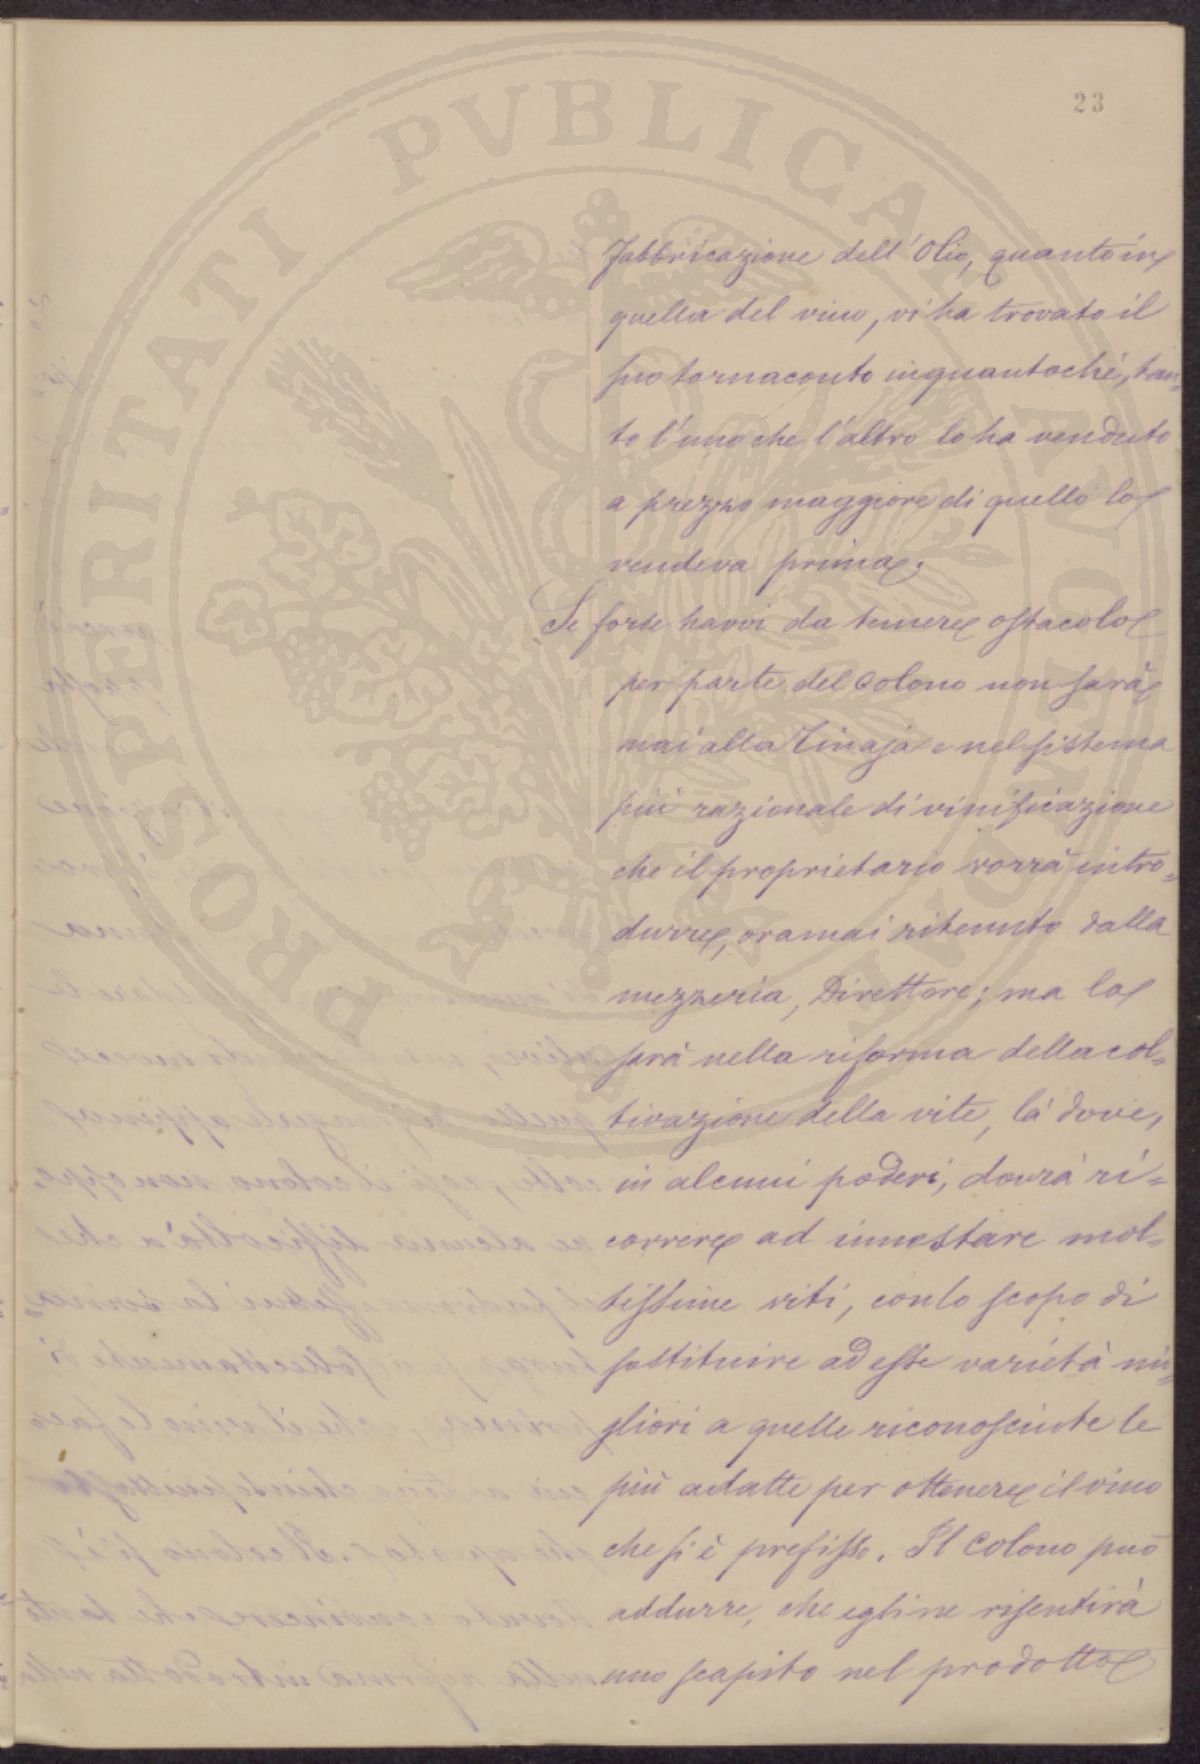 23
PROSPERITATI PVBLICAE
fabbricazione dell'Olio, quanto in
quella del vino, vi ha trovato il
suo tornaconto inquantoché, tan=
to l'uno che l'altro lo ha venduto
a prezzo maggiore di quello lo
vendeva prima.
Se forse havvi da temere ostacolo
per parte del Colono non sarà
mai alla Tinaja e nel sistema
più razionale di vinificazione
che il proprietario vorrà intro=
durre, oramai ritenuto dalla
mezzeria, Direttore; ma lo
sarà nella riforma della col=
tivazione della vite, là dove,
in alcuni poderi, dovrà ri=
correre ad innestare mol=
tissime viti, con lo scopo di
sostituire ad esse varietà mi=
gliori a quelle riconosciute le
più adatte per ottenere il vino
che si è prefisso. Il Colono può
addurre, che egli ne risentirà
uno scapito nel prodotto